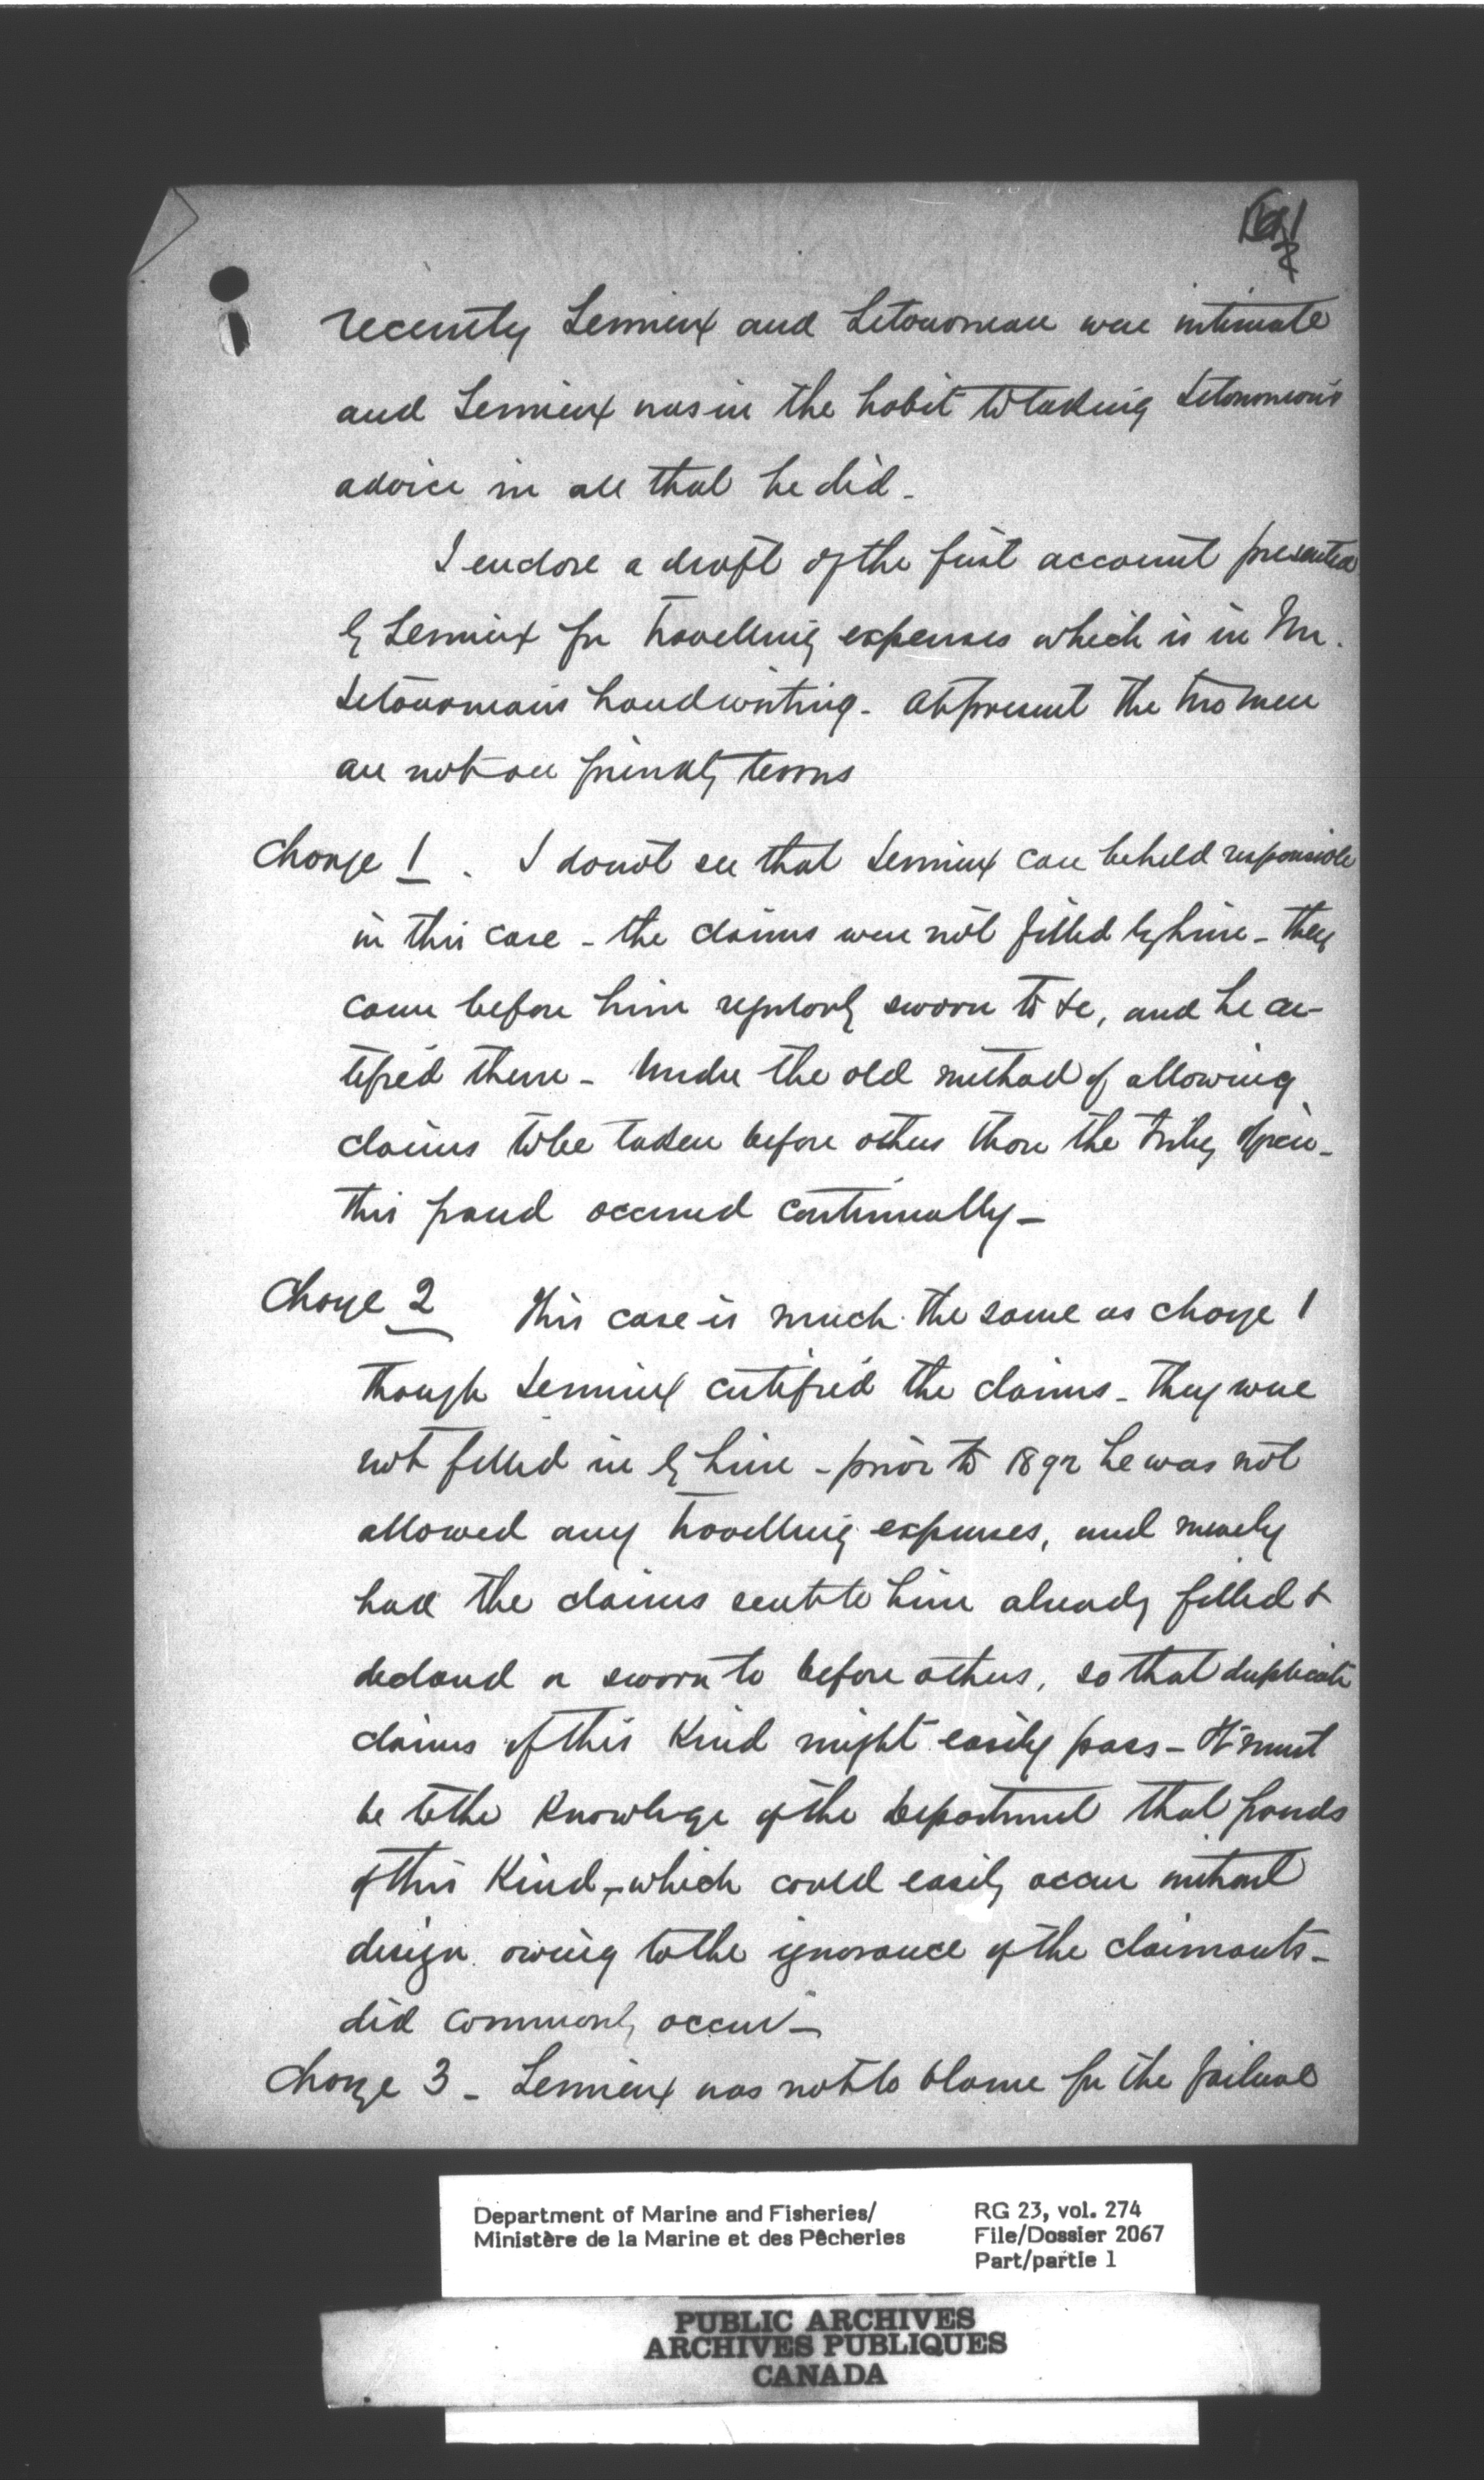 recently Lemieux and Letourneau were intimate
and Lemieux was in the habit to taking Letourneau's
advice in all that he did -
I enclose a draft of the first account presented
by Lemieux for travelling expenses which is in Mr.
Letourneau's handwriting - At present the two men
are not on friendly terms
Charge 1. I do not see that Lemieux can be held responsible
in this case - the claims were not filled by him - they
came before him regularly sworn to &c, and he cer-
tified them - Under the old method of allowing
claims to be taken before others than the Fishy Officer -
this fraud occurred continually -
Charge 2 This case is much the same as charge 1
though Lemieux certified the claims - they were
not filled in by him - prior to 1892 he was not
allowed any travelling expenses, and merely
had the claims sent to him already filled &
declared or sworn to before others, so that duplicate
claims of this kind might easily pass - It must
be to the knowledge of the Department that frauds
of this kind, which could easily occur without
design owing to the ignorance of the claimants -
did commonly occur -
Charge 3 - Lemieux was not to blame for the failure
Department of Marine and Fisheries/
Ministère de la Marine et des Pêcheries
RG 23, vol. 274
File/Dossier 2067
Part/partie 1
PUBLIC ARCHIVES
ARCHIVES PUBLIQUES
CANADA